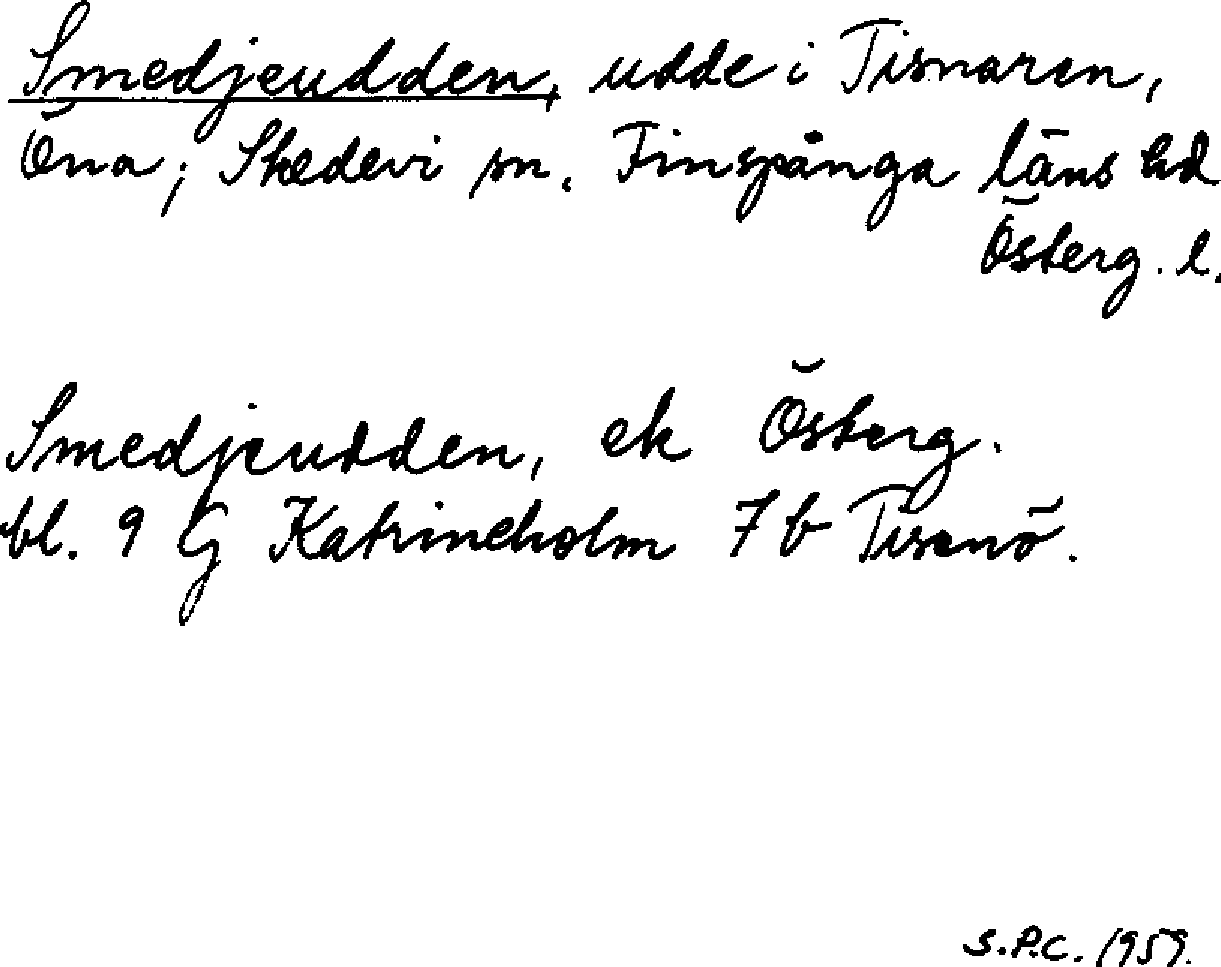 Smedjeudden, udde i Tisnaren,
Öna; Skedevi sn. Finspånga läns hd
Österg. l.
Smedjeudden, ek Österg.
bl. 9 G Katrineholm 7 b Tisenö.
S.P.C. 1959.